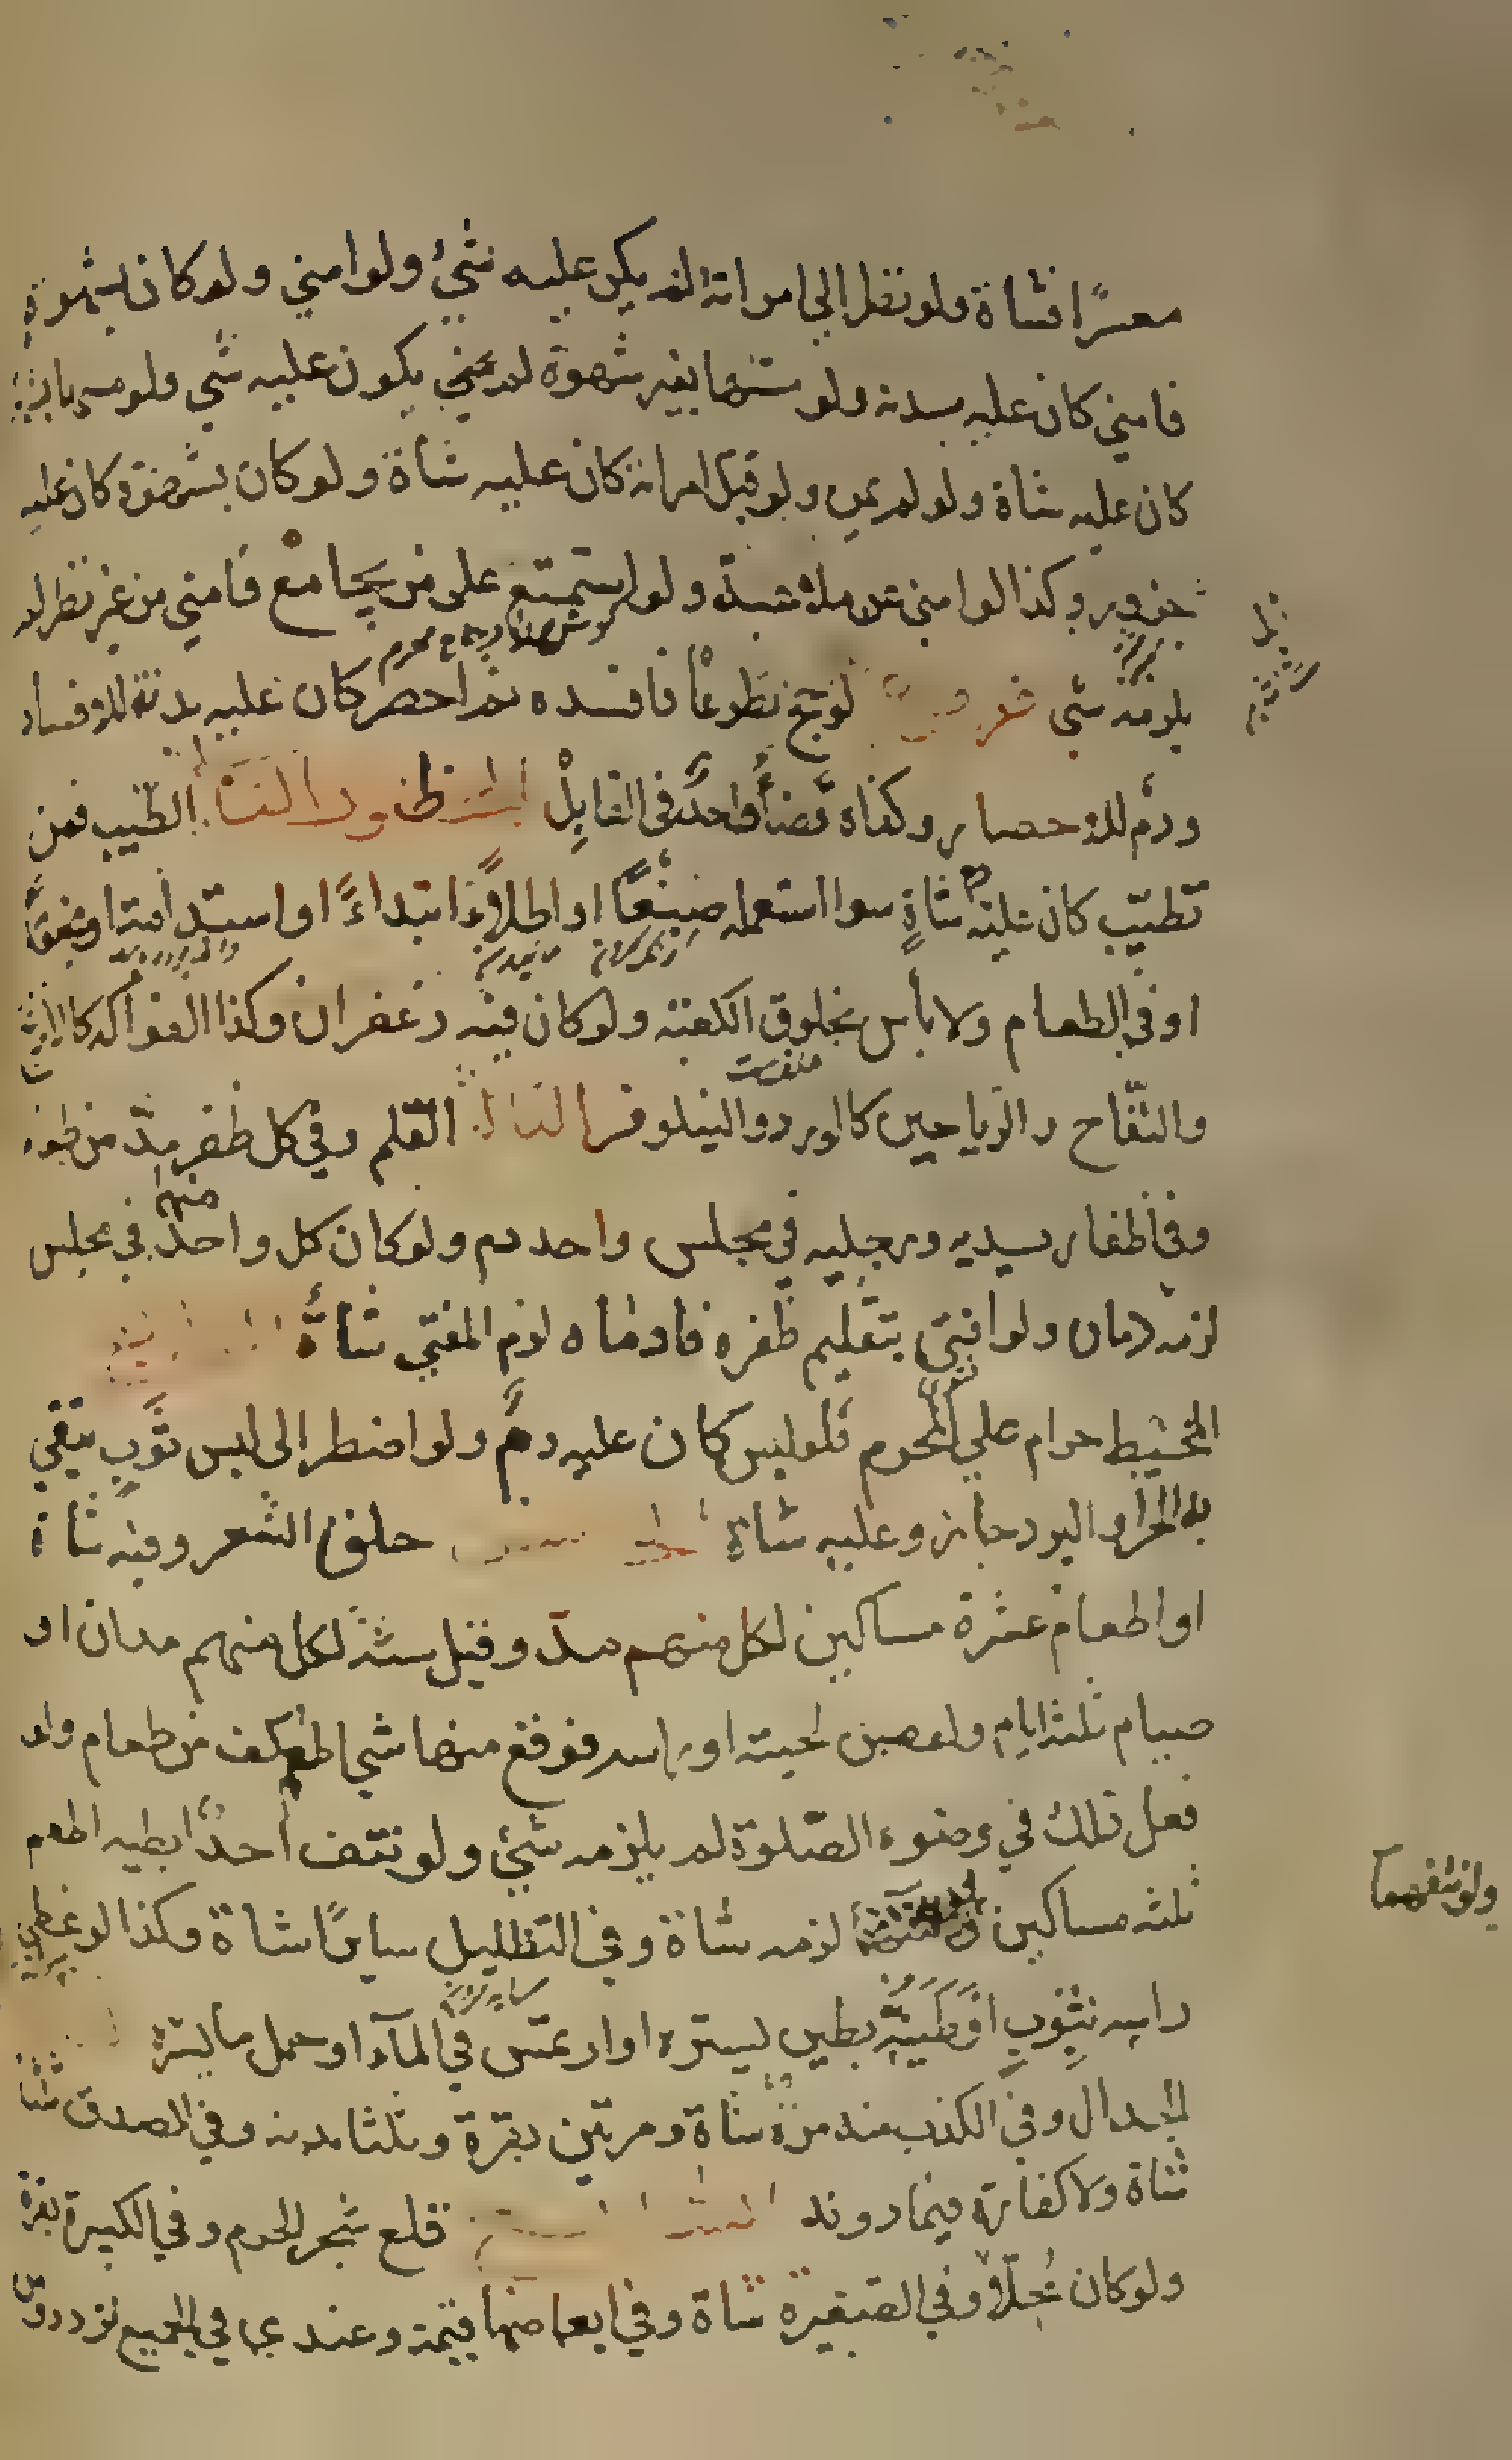 معسرًا فشاة ولو نظر الي امراته لم يكن عليه شئ ولو امني ولو كان بشهوة
فامني كان عليه بدنه ولو مسّها بغير شهوة لم يكون عليه شي ولو مسها
كان عليه شاة ولو لم يمن ولو قبل امراته كان عليه شاة ولو كان بشهوة كان عليه
جزور وكذا لو امني عن ملاعبة ولو استمتع على من يجامع فامني من غير نظر لم
يلزمه شي لو حج تطوعاً فافسده ثم احصر كان عليه بدنة للافساد
ودم للاحصار وكفاه قضأ واحد في القابل الطّيب فمن
تطيّب كان عليه شاةٍ سوا استعمله صبغًا او اطلاءً ابتداءً او استدامتا
او في الطعام ولا بأس بخلوق الكعبه ولو كان فيه زعفران وكذا الفواكه كالاترج
والتفّاح والرّياحين كالورد والنيلوفر القلم وفي كل ظفر مدّ من طعام
وفي اظفار يديه ورجليه في مجلس واحد دم ولو كان كل واحد منهما في مجلس
لزمه دمان ولو افتي بتقليم ظفره فادماه لزم المفتي شاة
المخيط حرام علي المحرم فلو لبس كان عليه دمٌ ولو اضطر الى لبس ثوبٍ يتقي
به الحر او البرد جاز وعليه شاة حلق الشّعر وفيه شاة
او اطعام عشرة مساكين لكل منهم مدّ وقيل ستة لكل منهم مدان او
صيام ثلثة ايام ولو مس لحيته او راسه فوقع منها شي اطعم كف من طعام ولو
فعل ذلك في وضوء الصّلوة لم يلزمه شئ ولو نتف أحد ابطيه اطعم
ثلثه مساكين لزمه شاة وفي التظليل سايرًا شاة وكذا لو غطى
راسه بثوبٍ او طيّنه بطين يستره او ارتمس في المآء او حمل ما يستره
الجدال وفي الكذب منه مرة شاة ومرتين بقرة وثلثا بدنه وفي الصدق ثلثا
شاة ولا كفارة فيما دونه قلع شجر الحرم وفي الكبيرة بقرة
ولو كان محلّا وفي الصّغيرة شاة وفي ابعاضها قيمة وعندي في الجميع تردد
ولو نتفهما